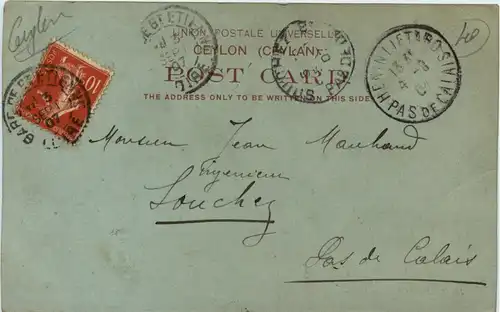 Ceylon
40
UNION POSTALE UNIVERSELLE
CEYLON (CEYLAN)
POST CARD
THE ADDRESS ONLY TO BE WRITTEN ON THIS SIDE
HENIN-LIETARD
PAS DE CALAIS
GARE DE
10
Monsieur Jean Marchand
Ingenieur
Souchez
Pas de Calais